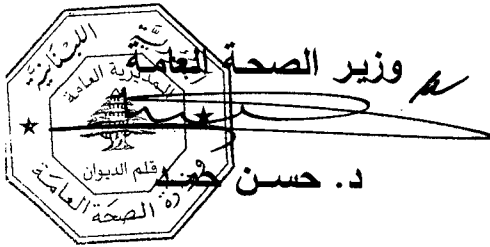 وزير الصحة العامة
د. حسن حمد
الجمهورية اللبنانية
المديرية العامة
قلم الديوان
وزارة الصحة العامة